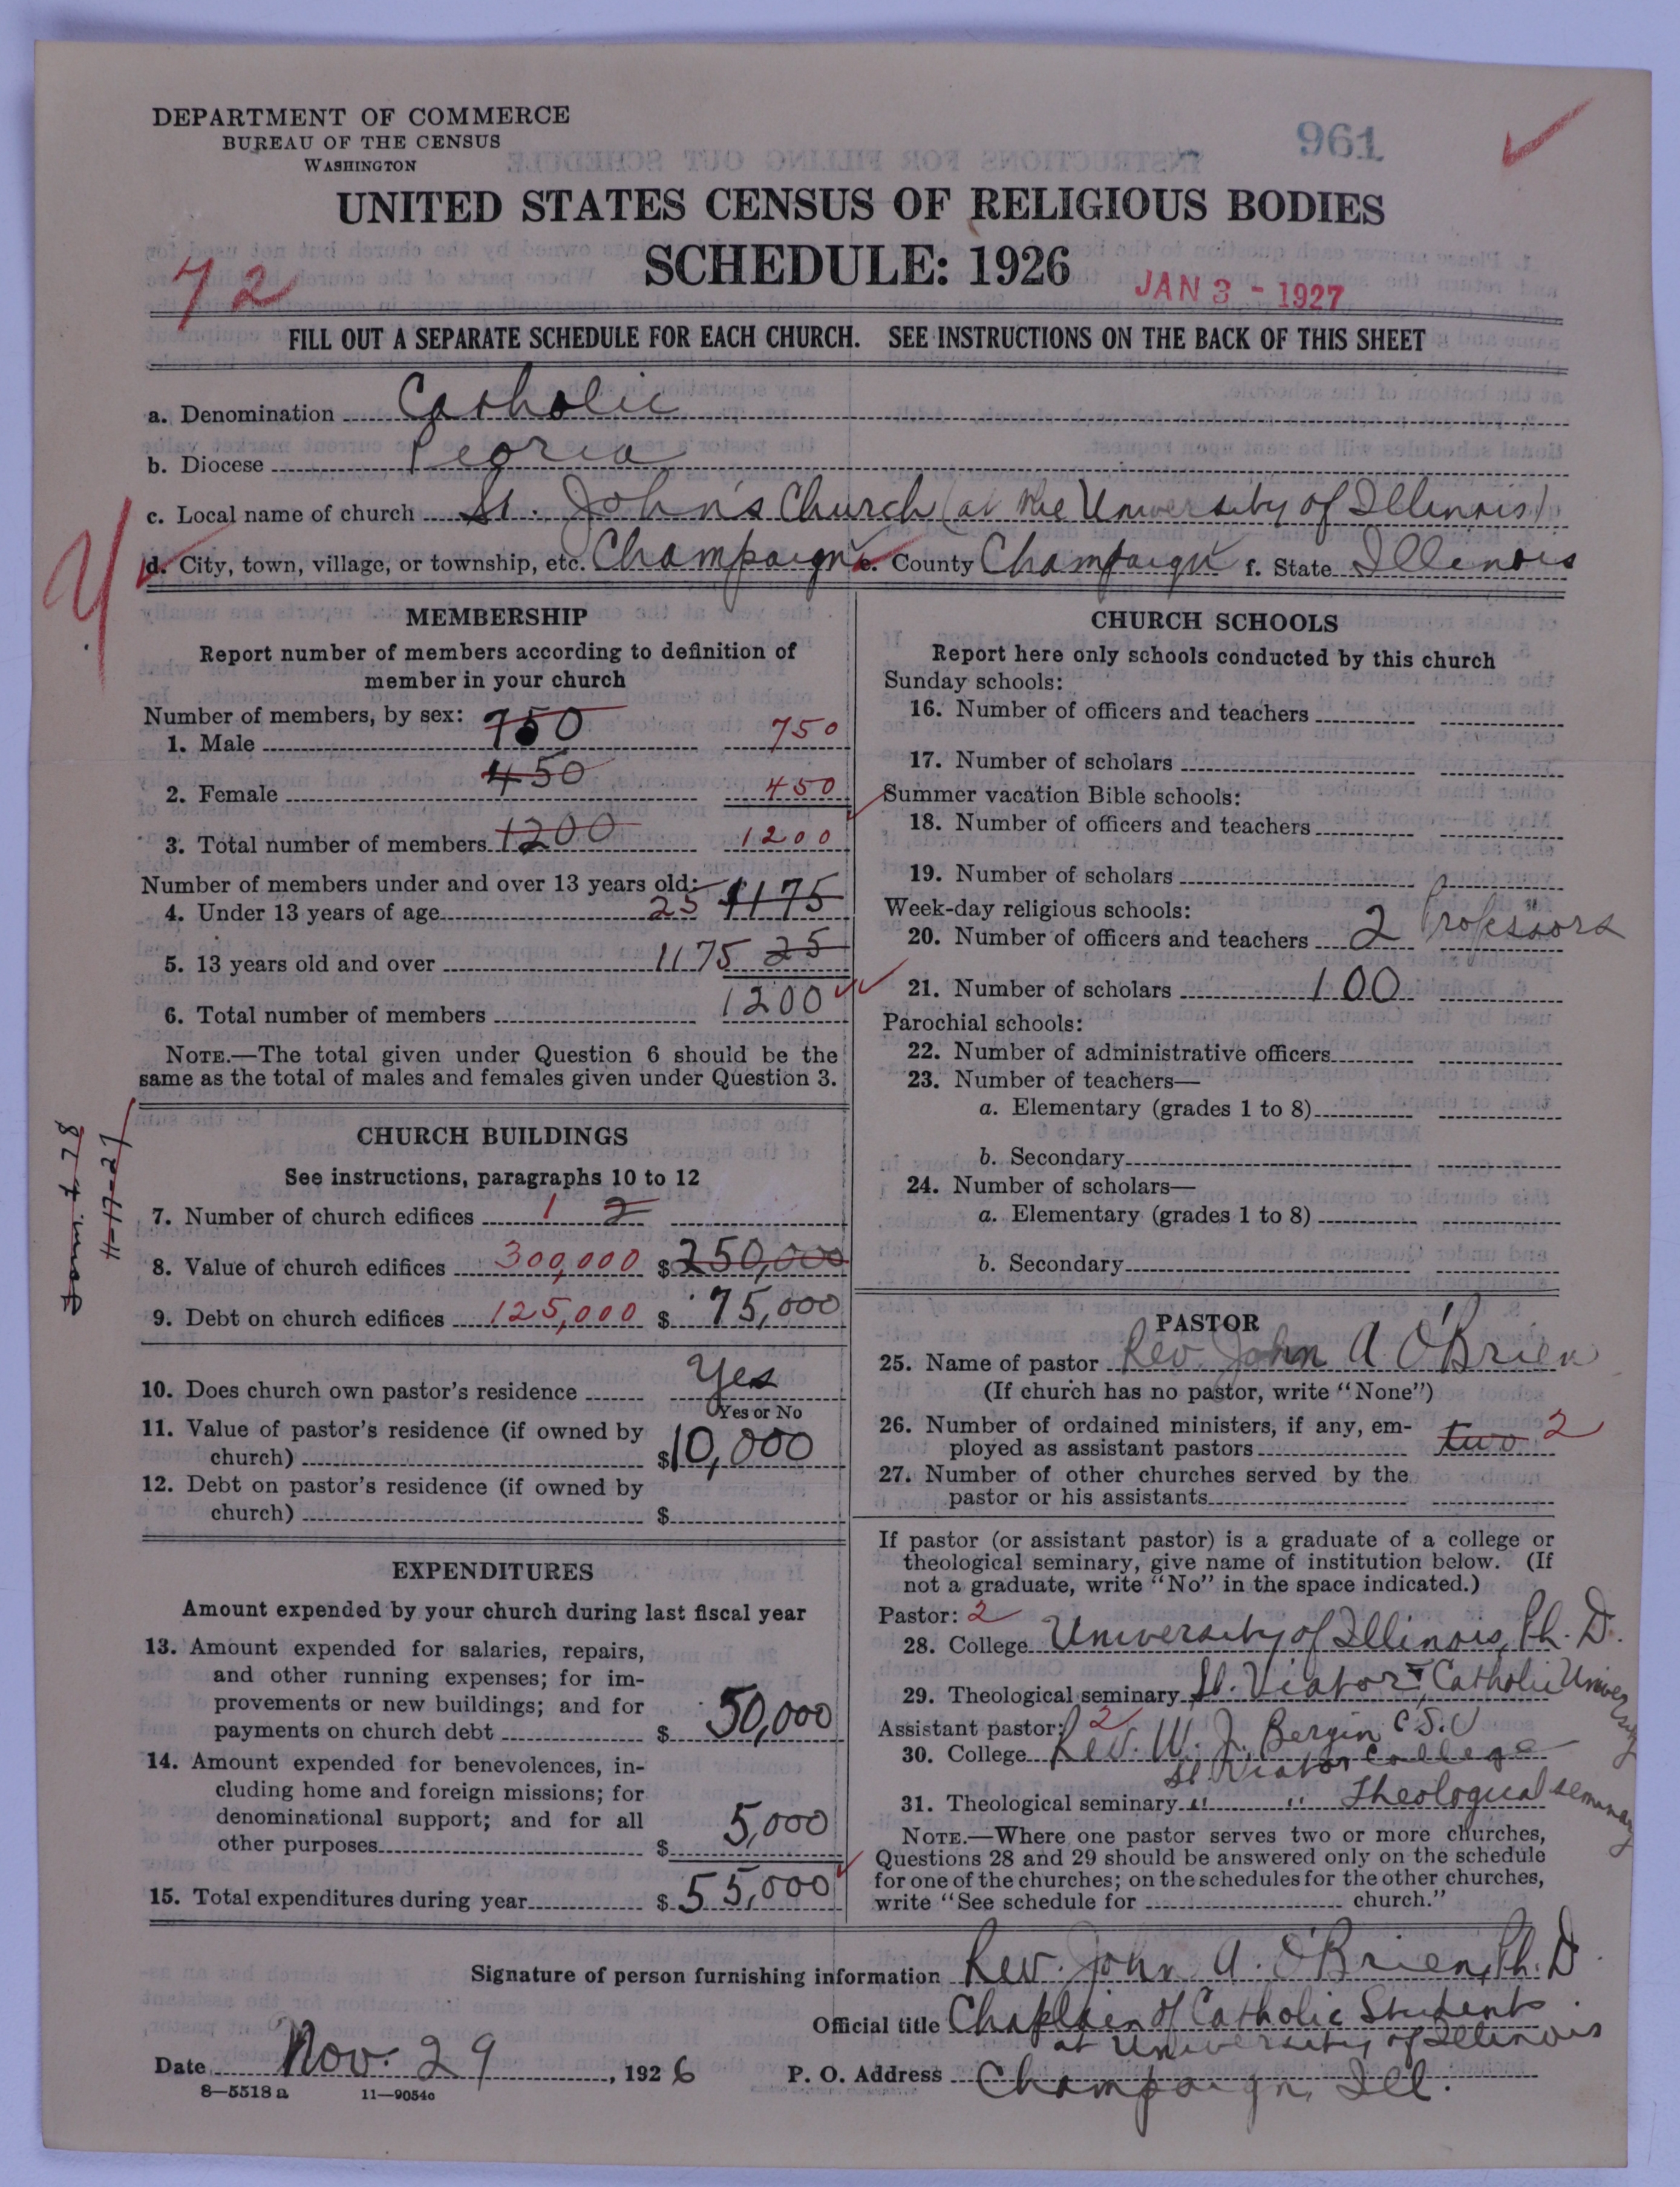 DEPARTMENT OF COMMERCE
BUREAU OF THE CENSUS
WASHINGTON
961
UNITED STATES CENSUS OF RELIGIOUS BODIES
SCHEDULE: 1926
72
JAN 3 - 1927
FILL OUT A SEPARATE SCHEDULE FOR EACH CHURCH. SEE INSTRUCTIONS ON THE BACK OF THIS SHEET
a. Denomination Catholic
b. Diocese Peoria
c. Local name of church St. John's Church (at the University of Illinois)
d. City, town, village, or township, etc. Champaign e. County Champaign f. State Illinois
MEMBERSHIP
Report number of members according to definition of
member in your church
Number of members, by sex:
1. Male 750 750
2. Female 450 450
3. Total number of members 1200 1200
Number of members under and over 13 years old:
4. Under 13 years of age 25 1175
5. 13 years old and over 1175 25
6. Total number of members 1200
NOTE.—The total given under Question 6 should be the
same as the total of males and females given under Question 3.
11-17-27
CHURCH BUILDINGS
See instructions, paragraphs 10 to 12
7. Number of church edifices 1 2
8. Value of church edifices 300,000 $250,000
9. Debt on church edifices 125,000 $ 75,000
10. Does church own pastor's residence Yes
Yes or No
11. Value of pastor's residence (if owned by
church) $10,000
12. Debt on pastor's residence (if owned by
church) $
EXPENDITURES
Amount expended by your church during last fiscal year
13. Amount expended for salaries, repairs,
and other running expenses; for im-
provements or new buildings; and for
payments on church debt $ 50,000
14. Amount expended for benevolences, in-
cluding home and foreign missions; for
denominational support; and for all
other purposes $ 5,000
15. Total expenditures during year $55,000
CHURCH SCHOOLS
Report here only schools conducted by this church
Sunday schools:
16. Number of officers and teachers
17. Number of scholars
Summer vacation Bible schools:
18. Number of officers and teachers
19. Number of scholars
Week-day religious schools:
20. Number of officers and teachers 2 Professors
21. Number of scholars 100
Parochial schools:
22. Number of administrative officers
23. Number of teachers—
a. Elementary (grades 1 to 8)
b. Secondary
24. Number of scholars—
a. Elementary (grades 1 to 8)
b. Secondary
PASTOR
25. Name of pastor Rev. John A O'Brien
(If church has no pastor, write "None")
26. Number of ordained ministers, if any, em-
ployed as assistant pastors two 2
27. Number of other churches served by the
pastor or his assistants
If pastor (or assistant pastor) is a graduate of a college or
theological seminary, give name of institution below. (If
not a graduate, write "No" in the space indicated.)
Pastor: 2
28. College University of Illinois, Ph. D.
29. Theological seminary St. Viator & Catholic University
Assistant pastor: 2
30. College Rev. W. J. Bergin C.S.V
St Viator College
31. Theological seminary " " Theological seminary
NOTE.—Where one pastor serves two or more churches,
Questions 28 and 29 should be answered only on the schedule
for one of the churches; on the schedules for the other churches,
write "See schedule for church."
Signature of person furnishing information Rev. John A. O'Brien, Ph. D
Official title Chaplain of Catholic Students
at University of Illinois
Date Nov. 29, 1926 P. O. Address Champaign, Ill.
8—5518 a 11—9054c